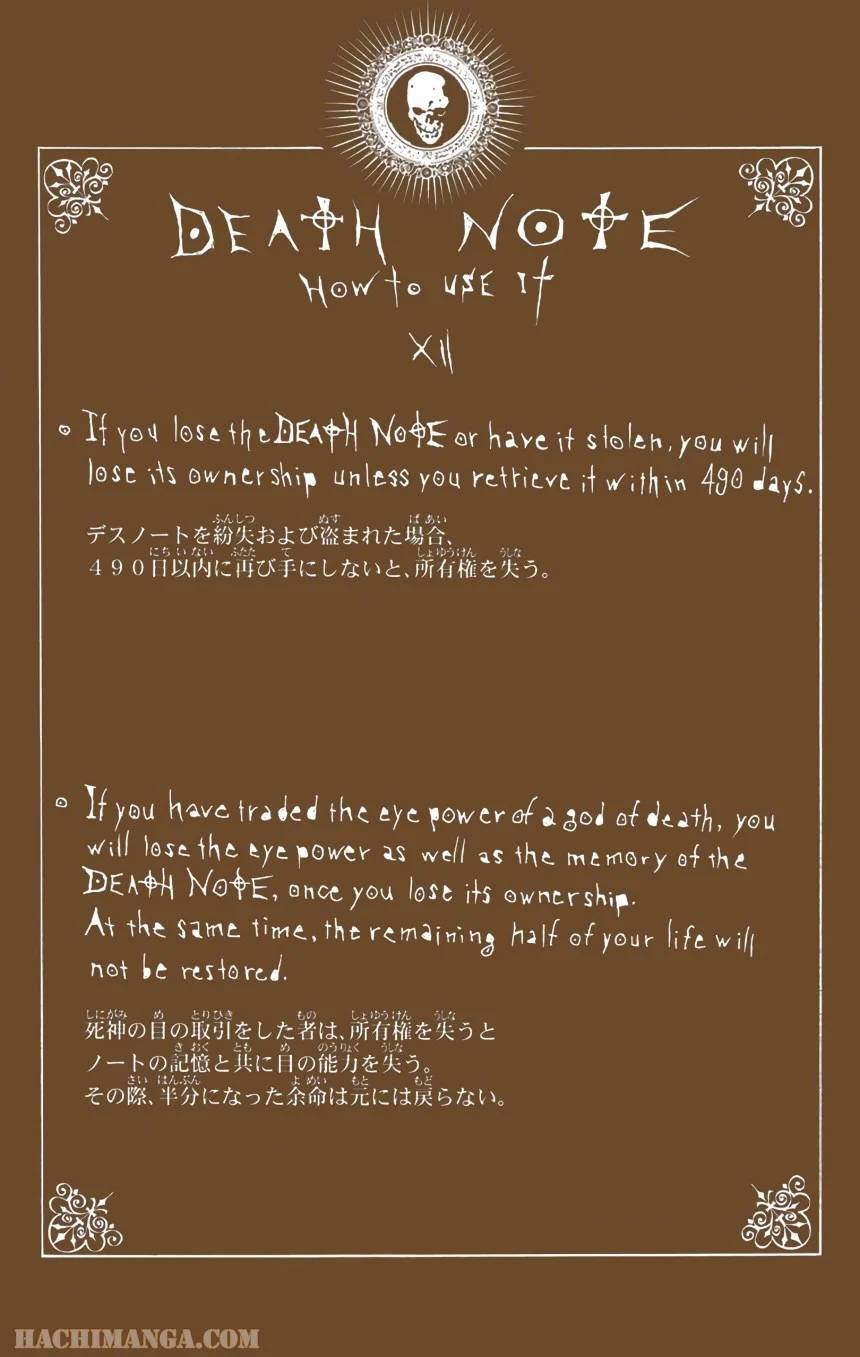 DEATH NOTE
HOW to USE It
XII
If you lose the DEATH NOTE or have it stolen, you will
lose its ownership unless you retrieve it within 490 days.
デスノートを紛失および盗まれた場合、
４９０日以内に再び手にしないと、所有権を失う。
If you have traded the eye power of a god of death, you
will lose the eye power as well as the memory of the
DEATH NOTE, once you lose its ownership.
At the same time, the remaining half of your life will
not be restored.
死神の目の取引をした者は、所有権を失うと
ノートの記憶と共に目の能力を失う。
その際、半分になった余命は元には戻らない。
HACHIMANGA.COM